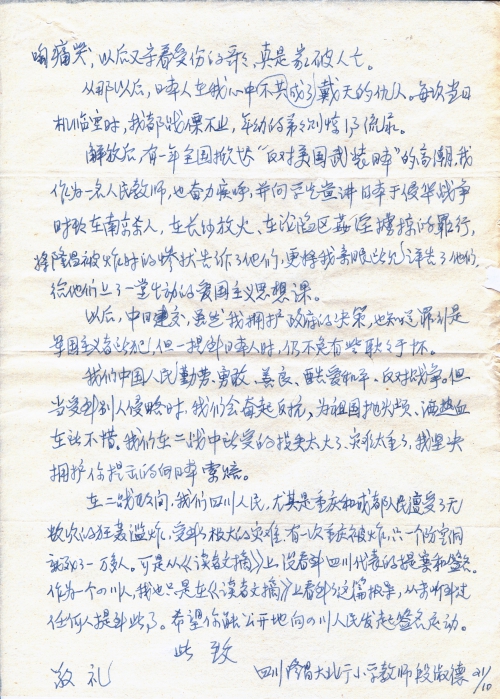 啕痛哭，以后又守着受伤的哥哥，真是家破人亡。
从那以后，日本人在我心中不共成了戴天的仇人。每次当日
机临空时，我都战慄不止，年幼的弟弟则嚇得流尿。
解放后，有一年全国掀起"反对美国武装日本"的高潮，我
作为一名人民教师，也奋力疾呼，并向学生宣讲日本于侵华战争
时欧在南京杀人，在长沙放火、在沦陷区奸淫掳掠的罪行，
将隆昌被炸时的惨状告诉了他们，更将我亲眼所见讲告了他们，
给他们上了一堂生动的爱国主义思想课。
以后，中日建交，虽然我拥护政府的决策，也知道罪引是
军国主义者所犯，但一提到日本人时，仍不免有些耿耿于怀。
我们中国人民勤劳、勇敢、善良、酷爱和平、反对战争。但
当受到别人侵略时，我们会奋起反抗，为祖国抛头颅、洒热血
在所不惜。我们在二战中所受的损失太大了、灾难太重了，我坚决
拥护你提示的向日本索赔。
在二战期间，我们四川人民，尤其是重庆和成都人民遭受了无
数次的狂轰滥炸，受到了极大的灾难，有一次重庆被炸，只一个防空洞
就死了一万多人。可是从《读者文摘》上，没看到四川代表的提案和签名。
作为一个四川人，我也只是在《读者文摘》上看到了这篇报导，从未听到过
任何人提到此事。希望你能公开地向四川人民发起签名运动。
此致
敬礼
四川隆昌大北街小学教师段淑德 21/10